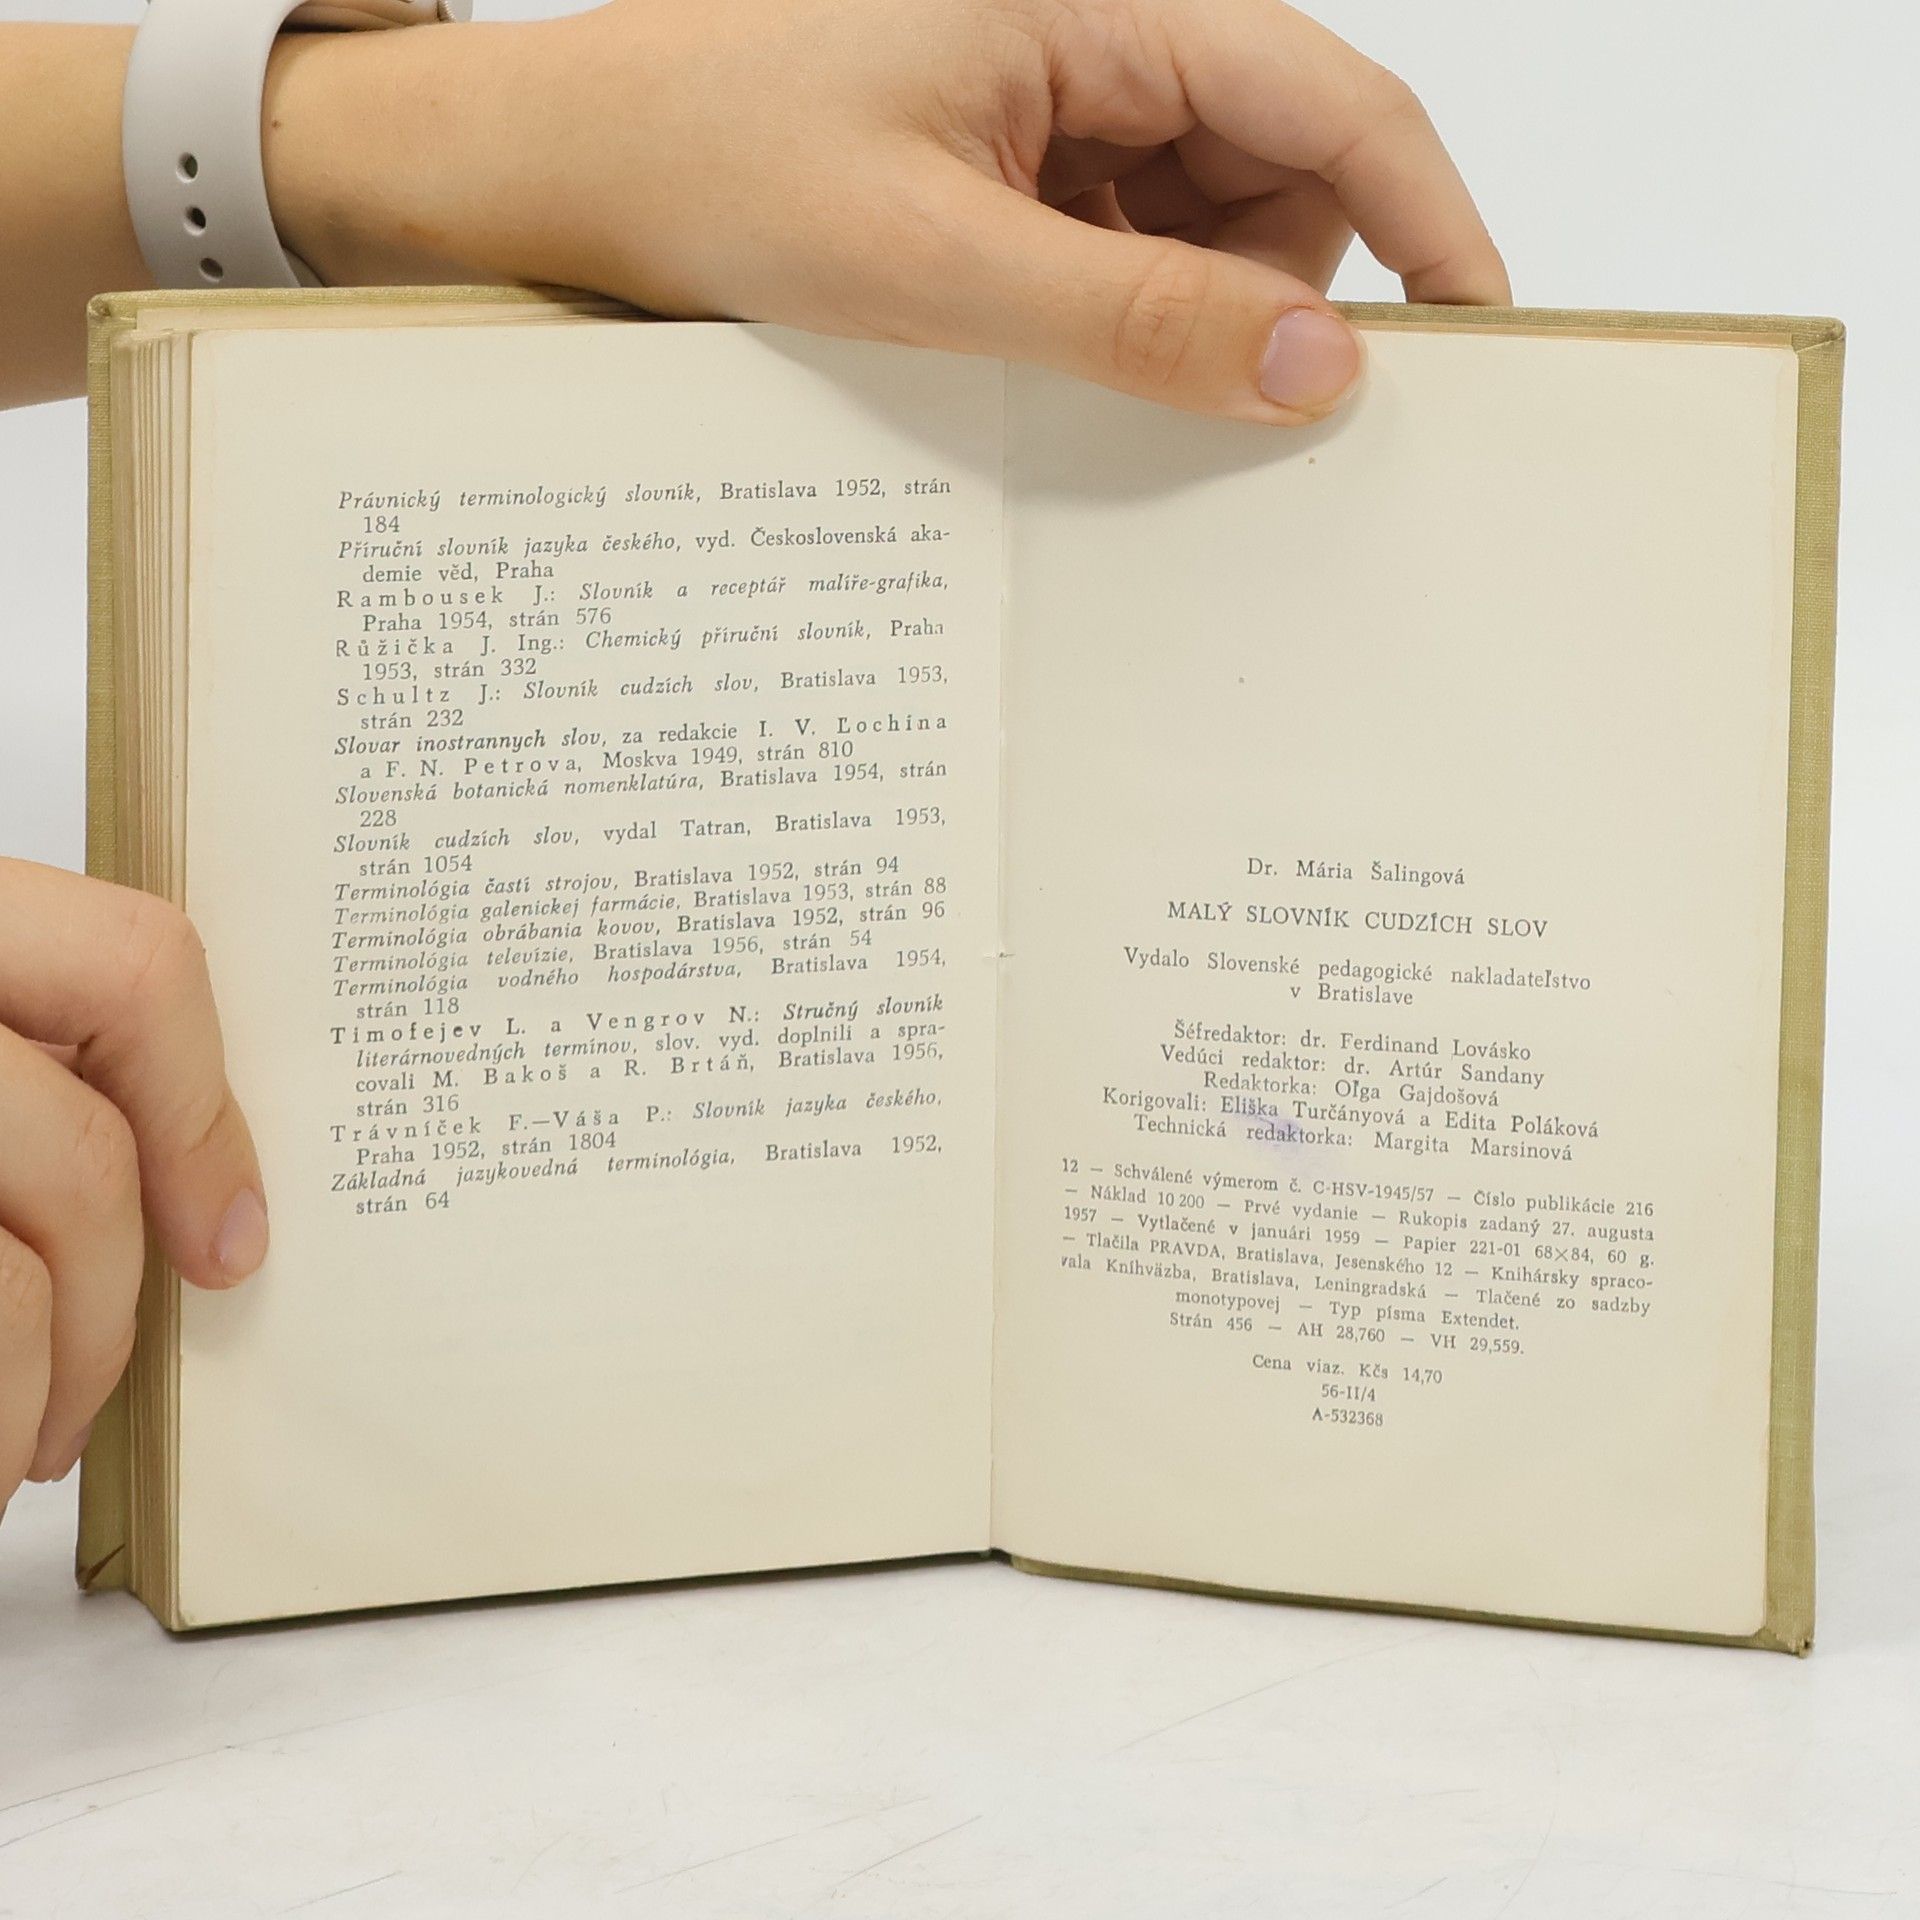 Právnický terminologický slovník, Bratislava 1952, strán
184
Příruční slovník jazyka českého, vyd. Československá aka-
demie věd, Praha
Rambousek J.: Slovník a receptář malíře-grafika,
Praha 1954, strán 576
Růžička J. Ing.: Chemický příruční slovník, Praha
1953, strán 332
Schultz J.: Slovník cudzích slov, Bratislava 1953,
strán 232
Slovar inostrannych slov, za redakcie I. V. Ľochina
a F. N. Petrova, Moskva 1949, strán 810
Slovenská botanická nomenklatúra, Bratislava 1954, strán
228
Slovník cudzích slov, vydal Tatran, Bratislava 1953,
strán 1054
Terminológia častí strojov, Bratislava 1952, strán 94
Terminológia galenickej farmácie, Bratislava 1953, strán 88
Terminológia obrábania kovov, Bratislava 1952, strán 96
Terminológia televízie, Bratislava 1956, strán 54
Terminológia vodného hospodárstva, Bratislava 1954,
strán 118
Timofejev L. a Vengrov N.: Stručný slovník
literárnovedných termínov, slov. vyd. doplnili a spra-
covali M. Bakoš a R. Brtáň, Bratislava 1956,
strán 316
Trávníček F.—Váša P.: Slovník jazyka českého,
Praha 1952, strán 1804
Základná jazykovedná terminológia, Bratislava 1952,
strán 64
Dr. Mária Šalingová
MALÝ SLOVNÍK CUDZÍCH SLOV
Vydalo Slovenské pedagogické nakladateľstvo
v Bratislave
Šéfredaktor: dr. Ferdinand Lovásko
Vedúci redaktor: dr. Artúr Sandany
Redaktorka: Oľga Gajdošová
Korigovali: Eliška Turčányová a Edita Poláková
Technická redaktorka: Margita Marsinová
12 — Schválené výmerom č. C-HSV-1945/57 — Číslo publikácie 216
— Náklad 10 200 — Prvé vydanie — Rukopis zadaný 27. augusta
1957 — Vytlačené v januári 1959 — Papier 221-01 68×84, 60 g.
— Tlačila PRAVDA, Bratislava, Jesenského 12 — Knihársky spraco-
vala Kníhväzba, Bratislava, Leningradská — Tlačené zo sadzby
monotypovej — Typ písma Extendet.
Strán 456 — AH 28,760 — VH 29,559.
Cena viaz. Kčs 14,70
56-II/4
A-532368